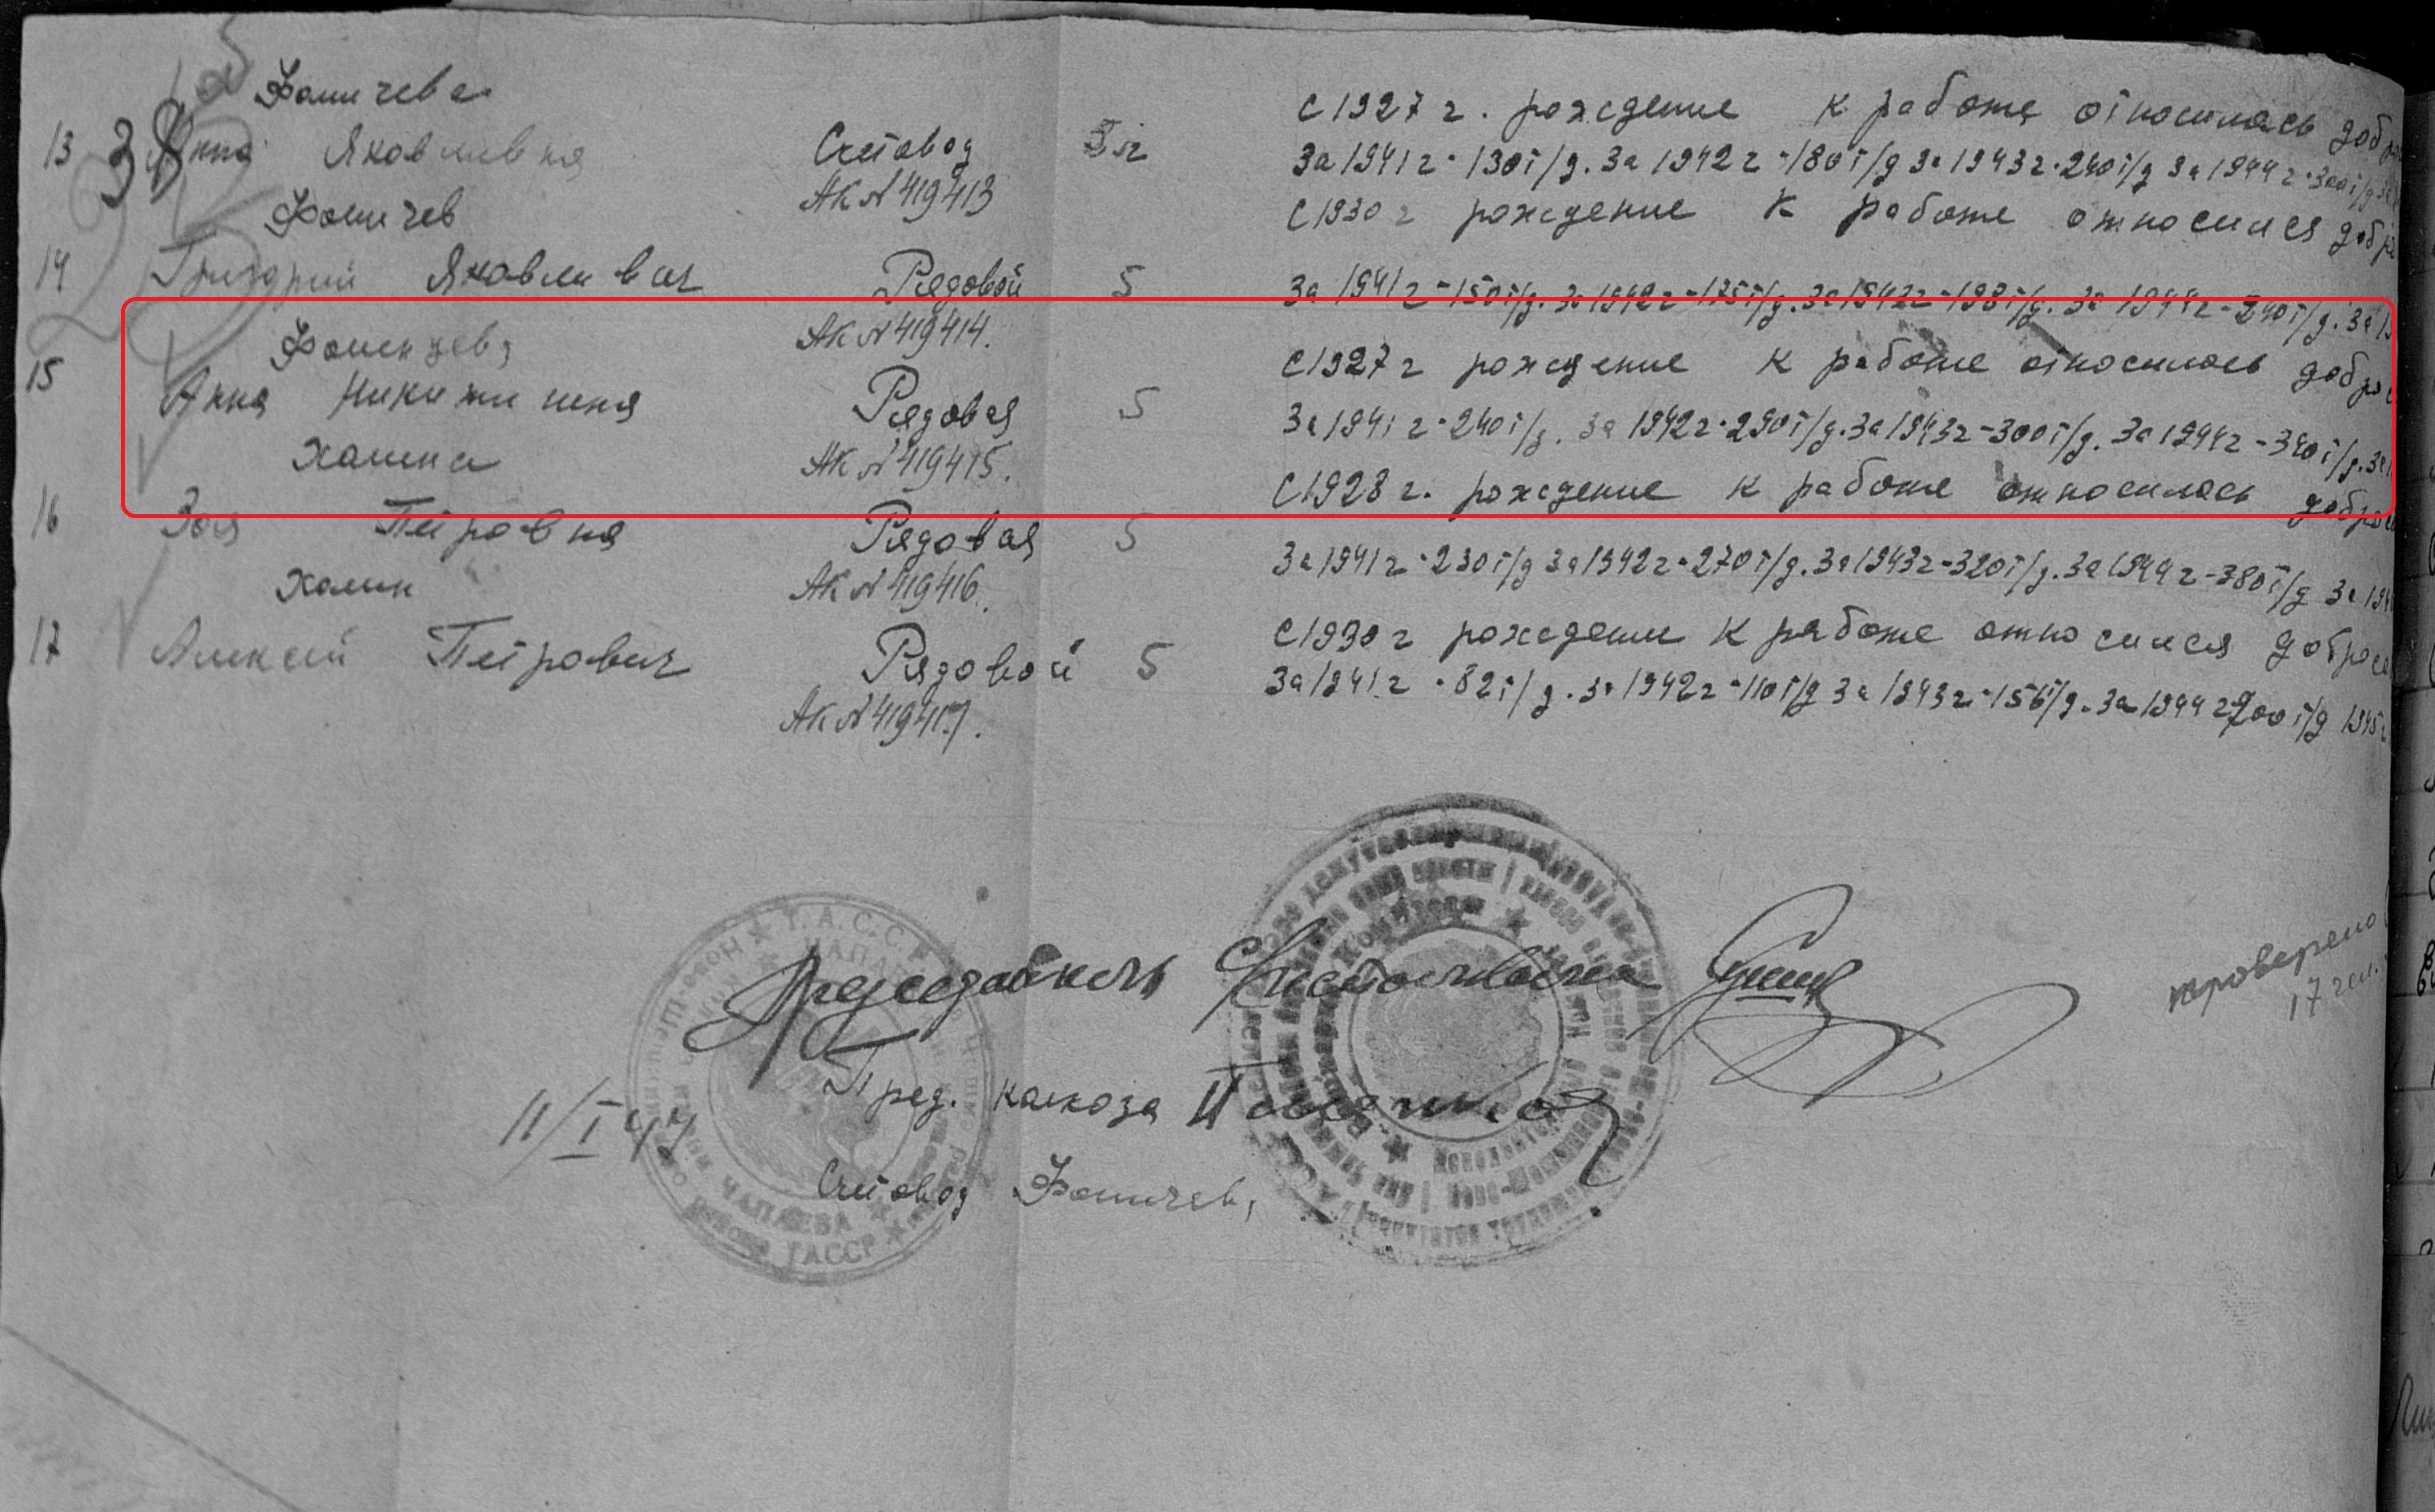 Фомичева
13 Анна Яковливна Счетовод 5 лг
С 1927 г. рождение к работе относилась добро
За 1941 г - 130 т/д. За 1942 г - 180 т/д За 1943 г - 240 т/д За 1944 г - 300 т/д За
АК № 419413
Фомичев
С 1930 г рождение к работе относился добро
14 Григорий Яковливич Рядовой 5
За 1941 г - 150 т/д. За 1942 г - 175 т/д. За 1943 г - 198 т/д. За 1944 г - 240 т/д. За 19
АК № 419414.
С 1927 г рождение к работе относилось добро
15 Анна Никитична Рядовая 5
За 1941 г - 240 т/д. За 1942 г - 290 т/д. За 1943 г - 300 т/д. За 1944 г - 340 т/д. За
Хамина АК № 419415.
С 1928 г. рождение к работе относилась добро
16 Зоя Петровна Рядовая 5
За 1941 г - 230 т/д За 1942 г - 270 т/д. За 1943 г - 320 т/д. За 1944 г - 380 т/д За 194
Хамин АК № 419416.
С 1930 г рождении к работе относился добросо
17 Алексей Петрович Рядовой 5
За 1941 г - 82 т/д. За 1942 г - 110 т/д За 1943 г - 156 т/д. За 1944 г 200 т/д 1945 г
АК № 419417.
Председатель
Пред. колхоза
11/I 47
Счетовод Фомичев,
проверено
17 чел.
Т.А.С.С.Р.
ЧАПАЕВА
ТАССР